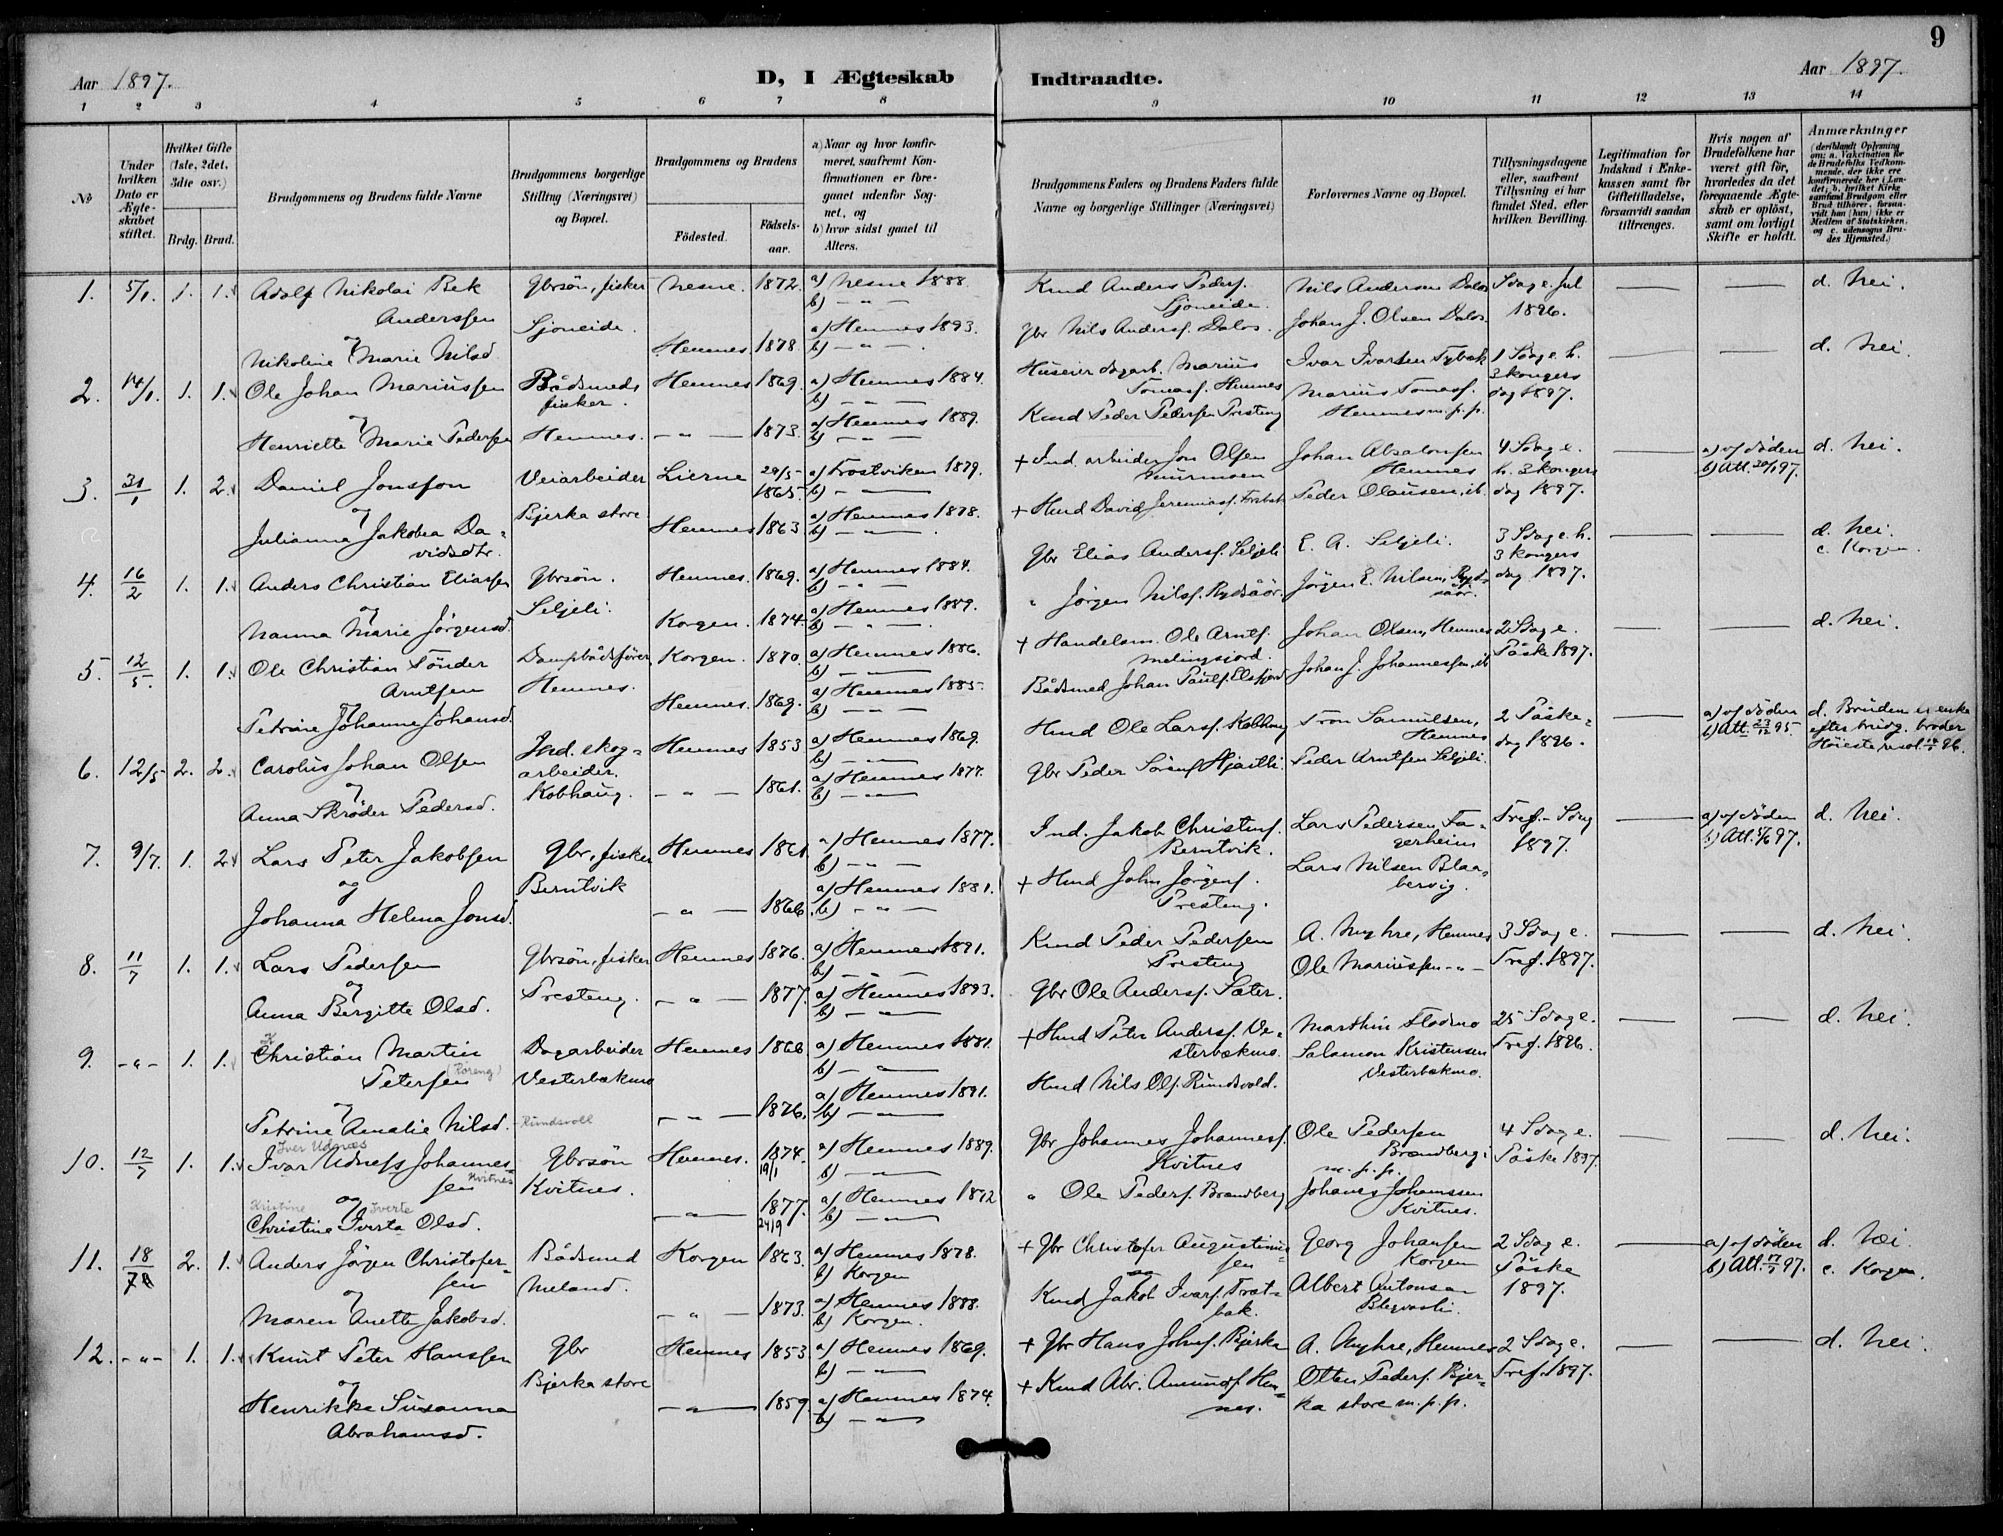 9
Aar 1897.
D, I Ægteskab Indtraadte.
Aar 1897.
1 2 3 4 5 6 7 8 9 10 11 12 13 14
No
Under hvilken Dato er Ægteskabet stiftet.
Hvilket Gifte (1ste, 2det, 3dte osv.)
Brdg. Brud.
Brudgommens og Brudens fulde Navne
Brudgommens borgerlige Stilling (Næringsvei) og Bopæl.
Brudgommens og Brudens
Födested. Födselsaar.
a) Naar og hvor konfirmeret, saafremt Konfirmationen er foregaaet udenfor Sognet, og
b) hvor sidst gaaet til Alters.
Brudgommens Faders og Brudens Faders fulde Navne og borgerlige Stillinger (Næringsvei)
Forlovernes Navne og Bopæl.
Tillysningsdagene eller, saafremt Tillysning ei har fundet Sted, efter hvilken Bevilling.
Legitimation for Indskud i Enkekassen samt for Giftetilladelse, forsaavidt saadan tiltrænges.
Hvis nogen af Brudefolkene har været gift för, hvorledes da det foregaaende Ægteskab er oplöst, samt om lovligt Skifte er holdt.
Anmærkninger (deriblandt Oplysning om: a. Vakcination for de Brudefolks Vedkommende, der ikke ere konfirmerede her i Landet; b. hvilket Kirkesamfund Brudgom eller Brud tilhörer, forsaavidt han (hun) ikke er Medlem af Statskirken, og c. udensogns Brudes Hjemsted.)
1. 5/1. 1. 1. Adolf Nikolai Rek Gbrsön, fisker Nesne. 1872. a) Nesne 1888. Kmd Anders Peders. Nils Andersen Dalos Sdag e. Jul d. Nei.
Anderssen Sjoneide. b) — " — Sjoneide. Johan J. Olsen Dalos. 1896.
og
Nikoline Marie Nilsd. Hemnes. 1878. a) Hemnes 1893. b) — " — Gbr Nils Anders. Dalos.
2. 14/1. 1. 1. Ole Johan Mariussen Bådsmed, Hemnes 1869. a) Hemnes 1884. Huseier dagarb. Marius Ivar Ivarsen 1 Sdag e. h. d. Nei.
fisker. b) — " — Tomass. Hemnes Marius Tomass. 3 kongers
og Hemnes m. p. p. dag 1897.
Henriette Marie Peders Hemnes. — " — 1873. a) Hemnes 1889. b) — " — Kmd Peder Pedersen Presteng
3. 31/1 1. 2. Daniel Jonsson Veiarbeider Lierne 29/5 1865. a) Frostviken 1879. + Ind. arbeider Jon Olsen Johan Absalonsen 4 Sdag e. a) v/ döden d. Nei.
og Bjerka store b) — " — Hemnes h. 3 kongers b) Att. 30/1 97.
Julianna Jakobea Da- Hemnes 1863 a) Hemnes 1878. + Hmd David Jeremias. Peder Olausen, ib. dag 1897.
vidsdtr. b) — " —
4. 16/2 1. 1. Anders Christian Eliassen Gbrsön. Hemnes. 1869. a) Hemnes 1884. Gbr Elias Anders. Seljeli E. A. Seljeli. 3 Sdag e. h. d. Nei.
og Seljeli. b) — " — 3 kongers c. Korgen.
Nanna Marie Jörgensd. Korgen. 1874. a) Hemnes 1889. b) — " — " Jörgen Nils. Rydsåör. Jörgen E. Nilsen, Ryds- dag 1897.
åör.
5. 12/5. 1. 1. Ole Christian Tönder Dampbådsförer, Korgen. 1870. a) Hemnes 1886. + Handelsm. Ole Arnts. Johan Olsen, Hemnes 2 Sdag e. d. Nei.
Arntsen Hemnes. b) — " — Johan J. Johannessen, ib Påske 1897.
og
Petrine Johanne Johansd. Hemnes. 1869. a) Hemnes 1885. b) — " — Bådsmed Johan Pauls. Elsfjord
6. 12/5 2. 2. Carolus Johan Olsen Ind. skog- Hemnes 1853 a) Hemnes 1869. Hmd Ole Lars. Kobhaug Tron Samuelsen, 2 Påske- a) v/ döden d. Bruden er enke
og arbeider. b) — " — Hemnes dag 1896. b) Att. 23/12 95. efter brudg. broder
Anna Skröder Pedersd. Kobhaug. — " — 1861. a) Hemnes 1877. b) — " — Gbr Peder Sörens. Peder Arntsen Seljeli. Höieste resol 14/2 96.
7. 9/7. 1. 2. Lars Peter Jakobsen Gbr, fisker Hemnes 1861. a) Hemnes 1877. Ind. Jakob Christens. Lars Pedersen Fa- Tref.- Sdag a) v/ döden d. Nei.
og Berntvik b) — " — Berntvik. gerheim 1897. b) Att. 4/6 97.
Johanna Helena Jonsd. — " — 1866. a) Hemnes 1881. b) — " — + Hmd John Jörgens. Lars Nilsen Blaa-
Presteng. bervig.
8. 11/7 1. 1. Lars Pedersen Gbrsön, fisker Hemnes 1876. a) Hemnes 1891. Kmd Peder Pedersen A. Myhre, Hemnes 3 Sdag e. d. Nei.
og Presteng. b) — " — Presteng Ole Mariussen — " — Tref. 1897.
Anna Bergitte Olsd. — " — 1877. a) Hemnes 1893. b) — " — Gbr Ole Anders. Sæter.
9. — " — 1. 1. Christian Martin Dagarbeider Hemnes 1868 a) Hemnes 1881. + Hmd Peter Anders. Ve- Marthin Flodmo 25 Sdag e. d. Nei.
K
Petersen (Roreng) Vesterbækmo b) — " — sterbækmo. Salamon Kristensen Tref. 1896.
og Vesterbækmo.
Petrine Amalie Nilsd. Rundsvoll — " — 1876. a) Hemnes 1891. b) — " — Hmd Nils Ols. Rundsvold.
10. 12/7 1. 1. Ivar Udness Johannes- Gbrsön Hemnes. 1874. a) Hemnes 1889. Gbr Johannes Johannes. Ole Pedersen 4 Sdag e. d. Nei.
Iver Udnæs
sen Kvitnes Kvitnes. 19/1 b) — " — Kvitnes Brændberg. Påske 1897.
og m. p. p.
Kristine Iverte
Christine Iverta Olsd. — " — 1877. 24/9 a) Hemnes 1892 b) — " — " Ole Peders. Brændberg Johannes Johanssen
Kvitnes.
11. 18/7 2. 1. Anders Jörgen Christofer- Bådsmed Korgen 1863. a) Hemnes 1878. + Gbr Christofer Augustinus Georg Johansen 2 Sdag e. a) v/ döden d. Nei.
sen Meland. b) Korgen sen Korgen Påske b) Att. 17/7 97. c. Korgen.
og
Maren Anette Jakobsd. — " — 1873. a) Hemnes 1888. b) Korgen. Kmd Jakob Ivars. Albert Antonsen 1897.
12. — " — 1. 1. Knut Peter Hanssen Gbr Hemnes 1853. a) Hemnes 1869. + Gbr Hans Johns. Bjerka A. Myhre, Hemnes 2 Sdag e. d. Nei.
og Bjerka store b) — " — Tref. 1897.
Henrikke Susanna — " — 1859. a) Hemnes 1874. + Kmd Abr. Amunds. Hem- Otten Peders. Bjer-
Abrahamsd. b) — " — nes. ka store m. p. p.